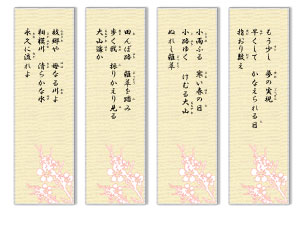 もう少し 夢の実現
早くして かなえられる日
指おり数え
小雨ふる 寒い春の日
小路ゆく けむる大山
ぬれし雑草
田んぼ路 雑草を踏み
歩く我 振りかえり見る
大山遥か
故郷や 母なる川よ
相模川 清らかな水
永久に流れよ